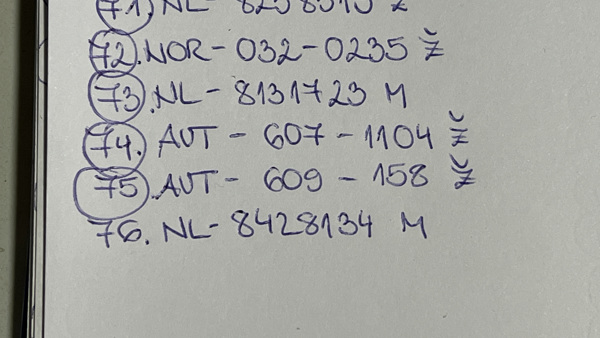 72. NOR - 032 - 0235 Ž
73. NL - 8131723 M
74. AUT - 607 - 1104 Ž
75. AUT - 609 - 158 Ž
76. NL - 8428134 M